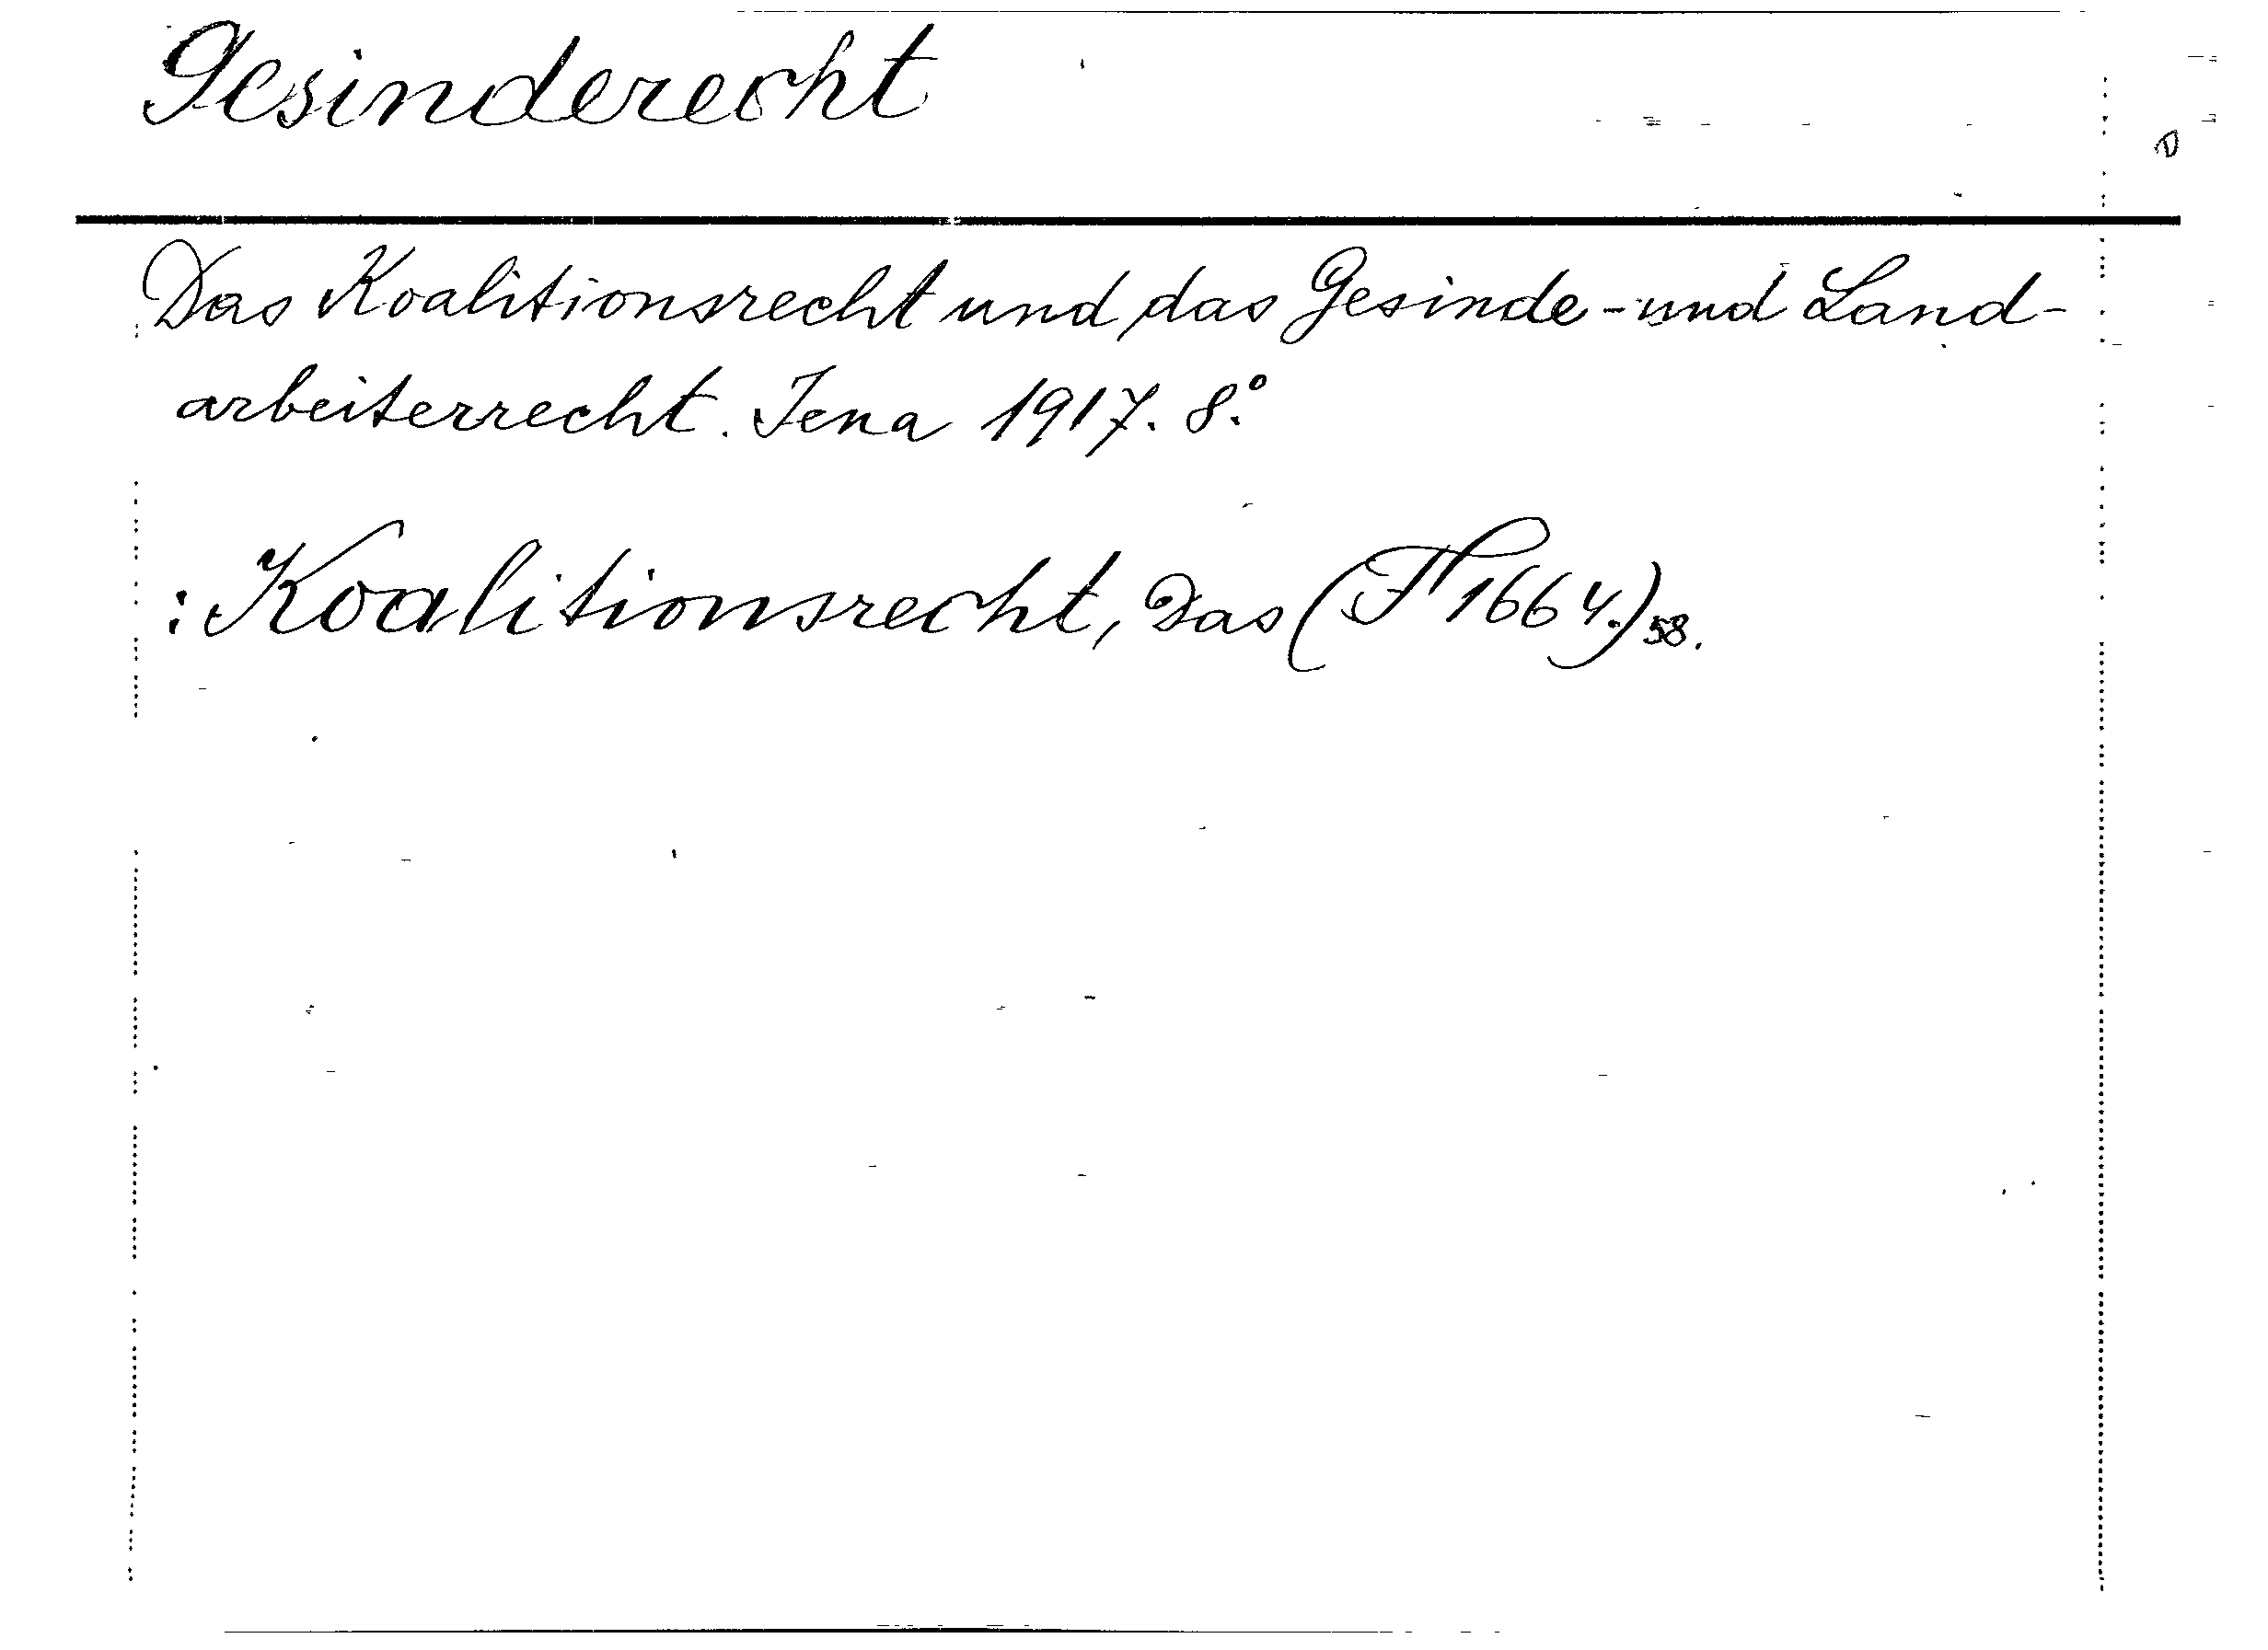 Gesinderecht
Das Koalitionsrecht und das Gesinde- und Land-
arbeiterrecht. Jena 1917. 8.°
: Koalitionsrecht, Das ( 1664.) 58.